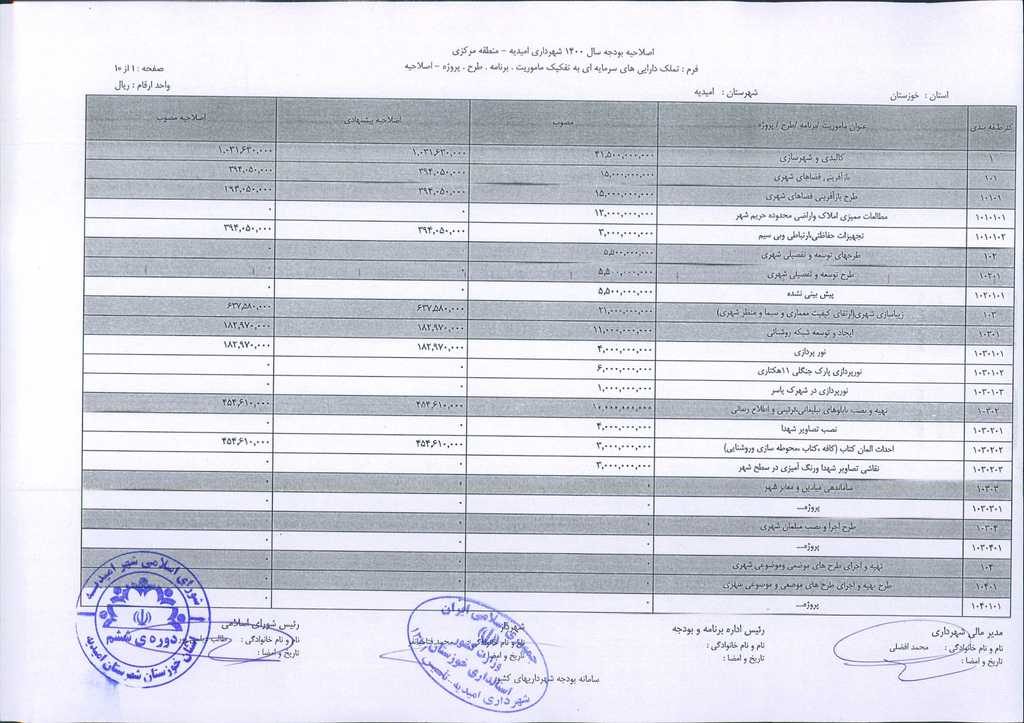 اصلاحیه بودجه سال ۱۴۰۰ شهرداری امیدیه - منطقه مرکزی
فرم : تملک دارایی های سرمایه ای به تفکیک ماموریت ، برنامه ، طرح ، پروژه - اصلاحیه
صفحه : ۱ از ۱۰
استان : خوزستان شهرستان : امیدیه واحد ارقام : ریال
کد طبقه بندی عنوان ماموریت /برنامه /طرح / پروژه مصوب اصلاحیه پیشنهادی اصلاحیه مصوب
۱ کالبدی و شهرسازی ۴۱,۵۰۰,۰۰۰,۰۰۰ ۱,۰۳۱,۶۳۰,۰۰۰ ۱,۰۳۱,۶۳۰,۰۰۰
۱۰۱ بازآفرینی فضاهای شهری ۱۵,۰۰۰,۰۰۰,۰۰۰ ۳۹۴,۰۵۰,۰۰۰ ۳۹۴,۰۵۰,۰۰۰
۱۰۱۰۱ طرح بازآفرینی فضاهای شهری ۱۵,۰۰۰,۰۰۰,۰۰۰ ۳۹۴,۰۵۰,۰۰۰ ۱۹۴,۰۵۰,۰۰۰
۱۰۱۰۱۰۱ مطالعات ممیزی املاک واراضی محدوده حریم شهر ۱۲,۰۰۰,۰۰۰,۰۰۰ ۰ ۰
۱۰۱۰۱۰۲ تجهیزات حفاظتی،ارتباطی وبی سیم ۳,۰۰۰,۰۰۰,۰۰۰ ۳۹۴,۰۵۰,۰۰۰ ۳۹۴,۰۵۰,۰۰۰
۱۰۲ طرحهای توسعه و تفصیلی شهری ۵,۵۰۰,۰۰۰,۰۰۰ ۰ ۰
۱۰۲۰۱ طرح توسعه و تفصیلی شهری ۵,۵۰۰,۰۰۰,۰۰۰ ۰ ۰
۱۰۲۰۱۰۱ پیش بینی نشده ۵,۵۰۰,۰۰۰,۰۰۰ ۰ ۰
۱۰۳ زیباسازی شهری(ارتقای کیفیت معماری و سیما و منظر شهری) ۲۱,۰۰۰,۰۰۰,۰۰۰ ۶۳۷,۵۸۰,۰۰۰ ۶۳۷,۵۸۰,۰۰۰
۱۰۳۰۱ ایجاد و توسعه شبکه روشنائی ۱۱,۰۰۰,۰۰۰,۰۰۰ ۱۸۲,۹۷۰,۰۰۰ ۱۸۲,۹۷۰,۰۰۰
۱۰۳۰۱۰۱ نور پردازی ۴,۰۰۰,۰۰۰,۰۰۰ ۱۸۲,۹۷۰,۰۰۰ ۱۸۲,۹۷۰,۰۰۰
۱۰۳۰۱۰۲ نورپردازی پارک جنگلی ۱۱هکتاری ۶,۰۰۰,۰۰۰,۰۰۰ ۰ ۰
۱۰۳۰۱۰۳ نورپردازی در شهرک یاسر ۱,۰۰۰,۰۰۰,۰۰۰ ۰ ۰
۱۰۳۰۲ تهیه و نصب تابلوهای تبلیغاتی،تزئینی و اطلاع رسانی ۱۰,۰۰۰,۰۰۰,۰۰۰ ۴۵۴,۶۱۰,۰۰۰ ۴۵۴,۶۱۰,۰۰۰
۱۰۳۰۲۰۱ نصب تصاویر شهدا ۴,۰۰۰,۰۰۰,۰۰۰ ۰ ۰
۱۰۳۰۲۰۲ احداث المان کتاب (کافه ،کتاب ،محوطه سازی وروشنایی) ۳,۰۰۰,۰۰۰,۰۰۰ ۴۵۴,۶۱۰,۰۰۰ ۴۵۴,۶۱۰,۰۰۰
۱۰۳۰۲۰۳ نقاشی تصاویر شهدا ورنگ آمیزی در سطح شهر ۳,۰۰۰,۰۰۰,۰۰۰ ۰ ۰
۱۰۳۰۳ ساماندهی میادین و معابر شهر ۰ ۰ ۰
۱۰۳۰۳۰۱ پروژه... ۰ ۰ ۰
۱۰۳۰۴ طرح اجرا و نصب مبلمان شهری ۰ ۰ ۰
۱۰۳۰۴۰۱ پروژه... ۰ ۰ ۰
۱۰۴ تهیه و اجرای طرح های موضعی وموضوعی شهری ۰ ۰ ۰
۱۰۴۰۱ طرح تهیه و اجرای طرح های موضعی و موضوعی شهری ۰ ۰ ۰
۱۰۴۰۱۰۱ پروژه... ۰ ۰
مدیر مالی شهرداری رئیس اداره برنامه و بودجه شهردار رئیس شورای اسلامی
نام و نام خانوادگی : محمد افضلی نام و نام خانوادگی : نام و نام خانوادگی : محمد نام و نام خانوادگی : طالب
تاریخ و امضا : تاریخ و امضا : تاریخ و امضا : تاریخ و امضا :
سامانه بودجه شهرداریهای کشور
شورای اسلامی شهر امیدیه
دوره ی ششم
استان خوزستان شهرستان امیدیه
جمهوری اسلامی ایران
وزارت کشور
استانداری خوزستان
شهرداری امیدیه